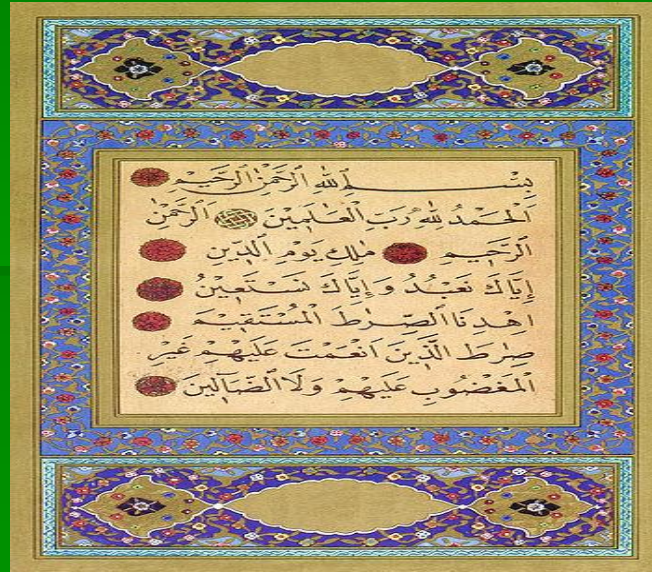 بِسْمِ اللّٰهِ الرَّحْمٰنِ الرَّحِيمِ
اَلْحَمْدُ لِلّٰهِ رَبِّ الْعَالَمِينَ الرَّحْمٰنِ
الرَّحِيمِ مٰلِكِ يَوْمِ الدِّينِ
إِيَّاكَ نَعْبُدُ وَإِيَّاكَ نَسْتَعِينُ
اِهْدِنَا الصِّرٰطَ الْمُسْتَقِيمَ
صِرٰطَ الَّذِينَ اَنْعَمْتَ عَلَيْهِمْ غَيْرِ
الْمَغْضُوبِ عَلَيْهِمْ وَلَا الضَّالِّينَ